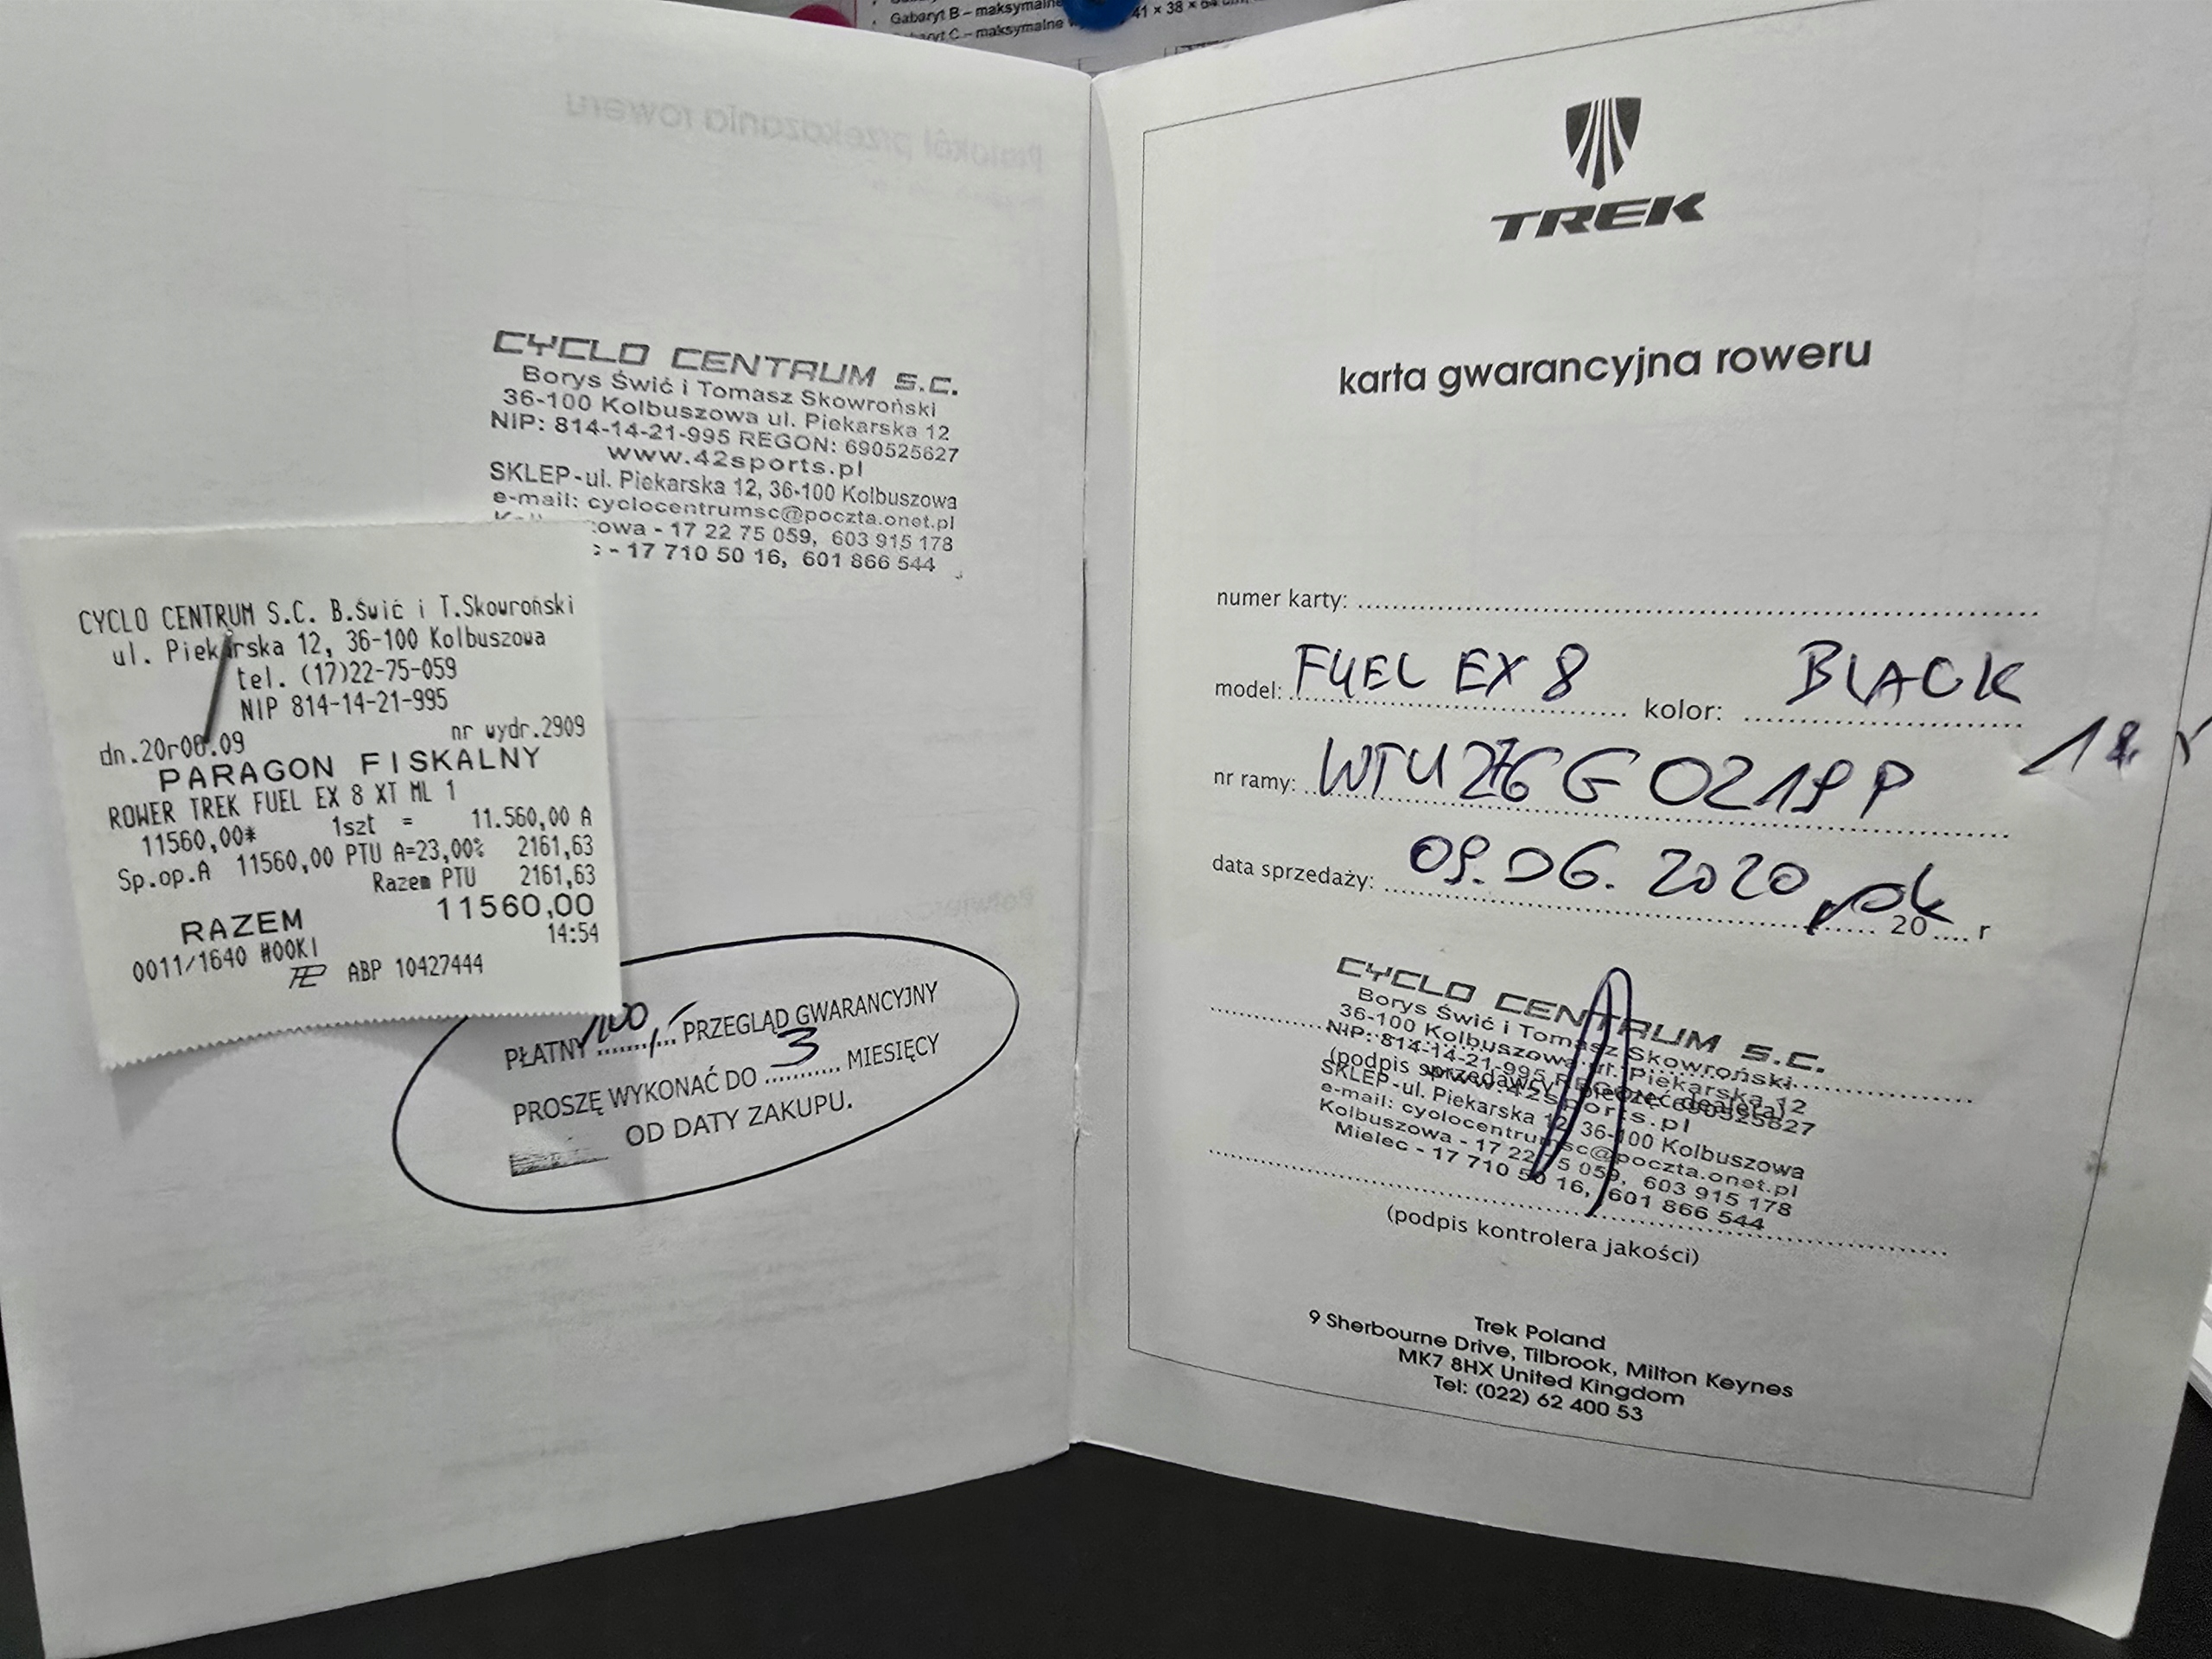 Gabaryt B – maksymalne
41 × 38 × 64
C – maksymalne
CYCLO CENTRUM S.C.
Borys Świć i Tomasz Skowroński
36-100 Kolbuszowa ul. Piekarska 12
NIP: 814-14-21-995 REGON: 690525627
www.42sports.pl
SKLEP-ul. Piekarska 12, 36-100 Kolbuszowa
e-mail: cyclocentrumsc@poczta.onet.pl
owa - 17 22 75 059, 603 915 178
- 17 710 50 16, 601 866 544
CYCLO CENTRUM S.C. B.Świć i T.Skowroński
ul. Piekarska 12, 36-100 Kolbuszowa
tel. (17)22-75-059
NIP 814-14-21-995
dn.20r06.09 nr wydr.2909
PARAGON FISKALNY
ROWER TREK FUEL EX 8 XT ML 1
11560,00* 1szt = 11.560,00 A
Sp.op.A 11560,00 PTU A=23,00% 2161,63
Razem PTU 2161,63
RAZEM 11560,00
14:54
0011/1640 #00KI
ABP 10427444
PŁATNY 100,- PRZEGLĄD GWARANCYJNY
PROSZĘ WYKONAĆ DO 3 MIESIĘCY
OD DATY ZAKUPU.
TREK
karta gwarancyjna roweru
numer karty:
model: FUEL EX 8 kolor: BLACK
nr ramy: WTU276G0219P
data sprzedaży: 09.06.2020 rok 20 r
CYCLO CENTRUM S.C.
Borys Świć i Tomasz Skowroński
36-100 Kolbuszowa ul. Piekarska 12
NIP: 814-14-21-995 REGON: 690525627
(podpis sprzedawcy i pieczęć dealera)
www.42sports.pl
SKLEP-ul. Piekarska 12, 36-100 Kolbuszowa
e-mail: cyclocentrumsc@poczta.onet.pl
Kolbuszowa - 17 22 75 059, 603 915 178
Mielec - 17 710 50 16, 601 866 544
(podpis kontrolera jakości)
Trek Poland
9 Sherbourne Drive, Tilbrook, Milton Keynes
MK7 8HX United Kingdom
Tel: (022) 62 400 53